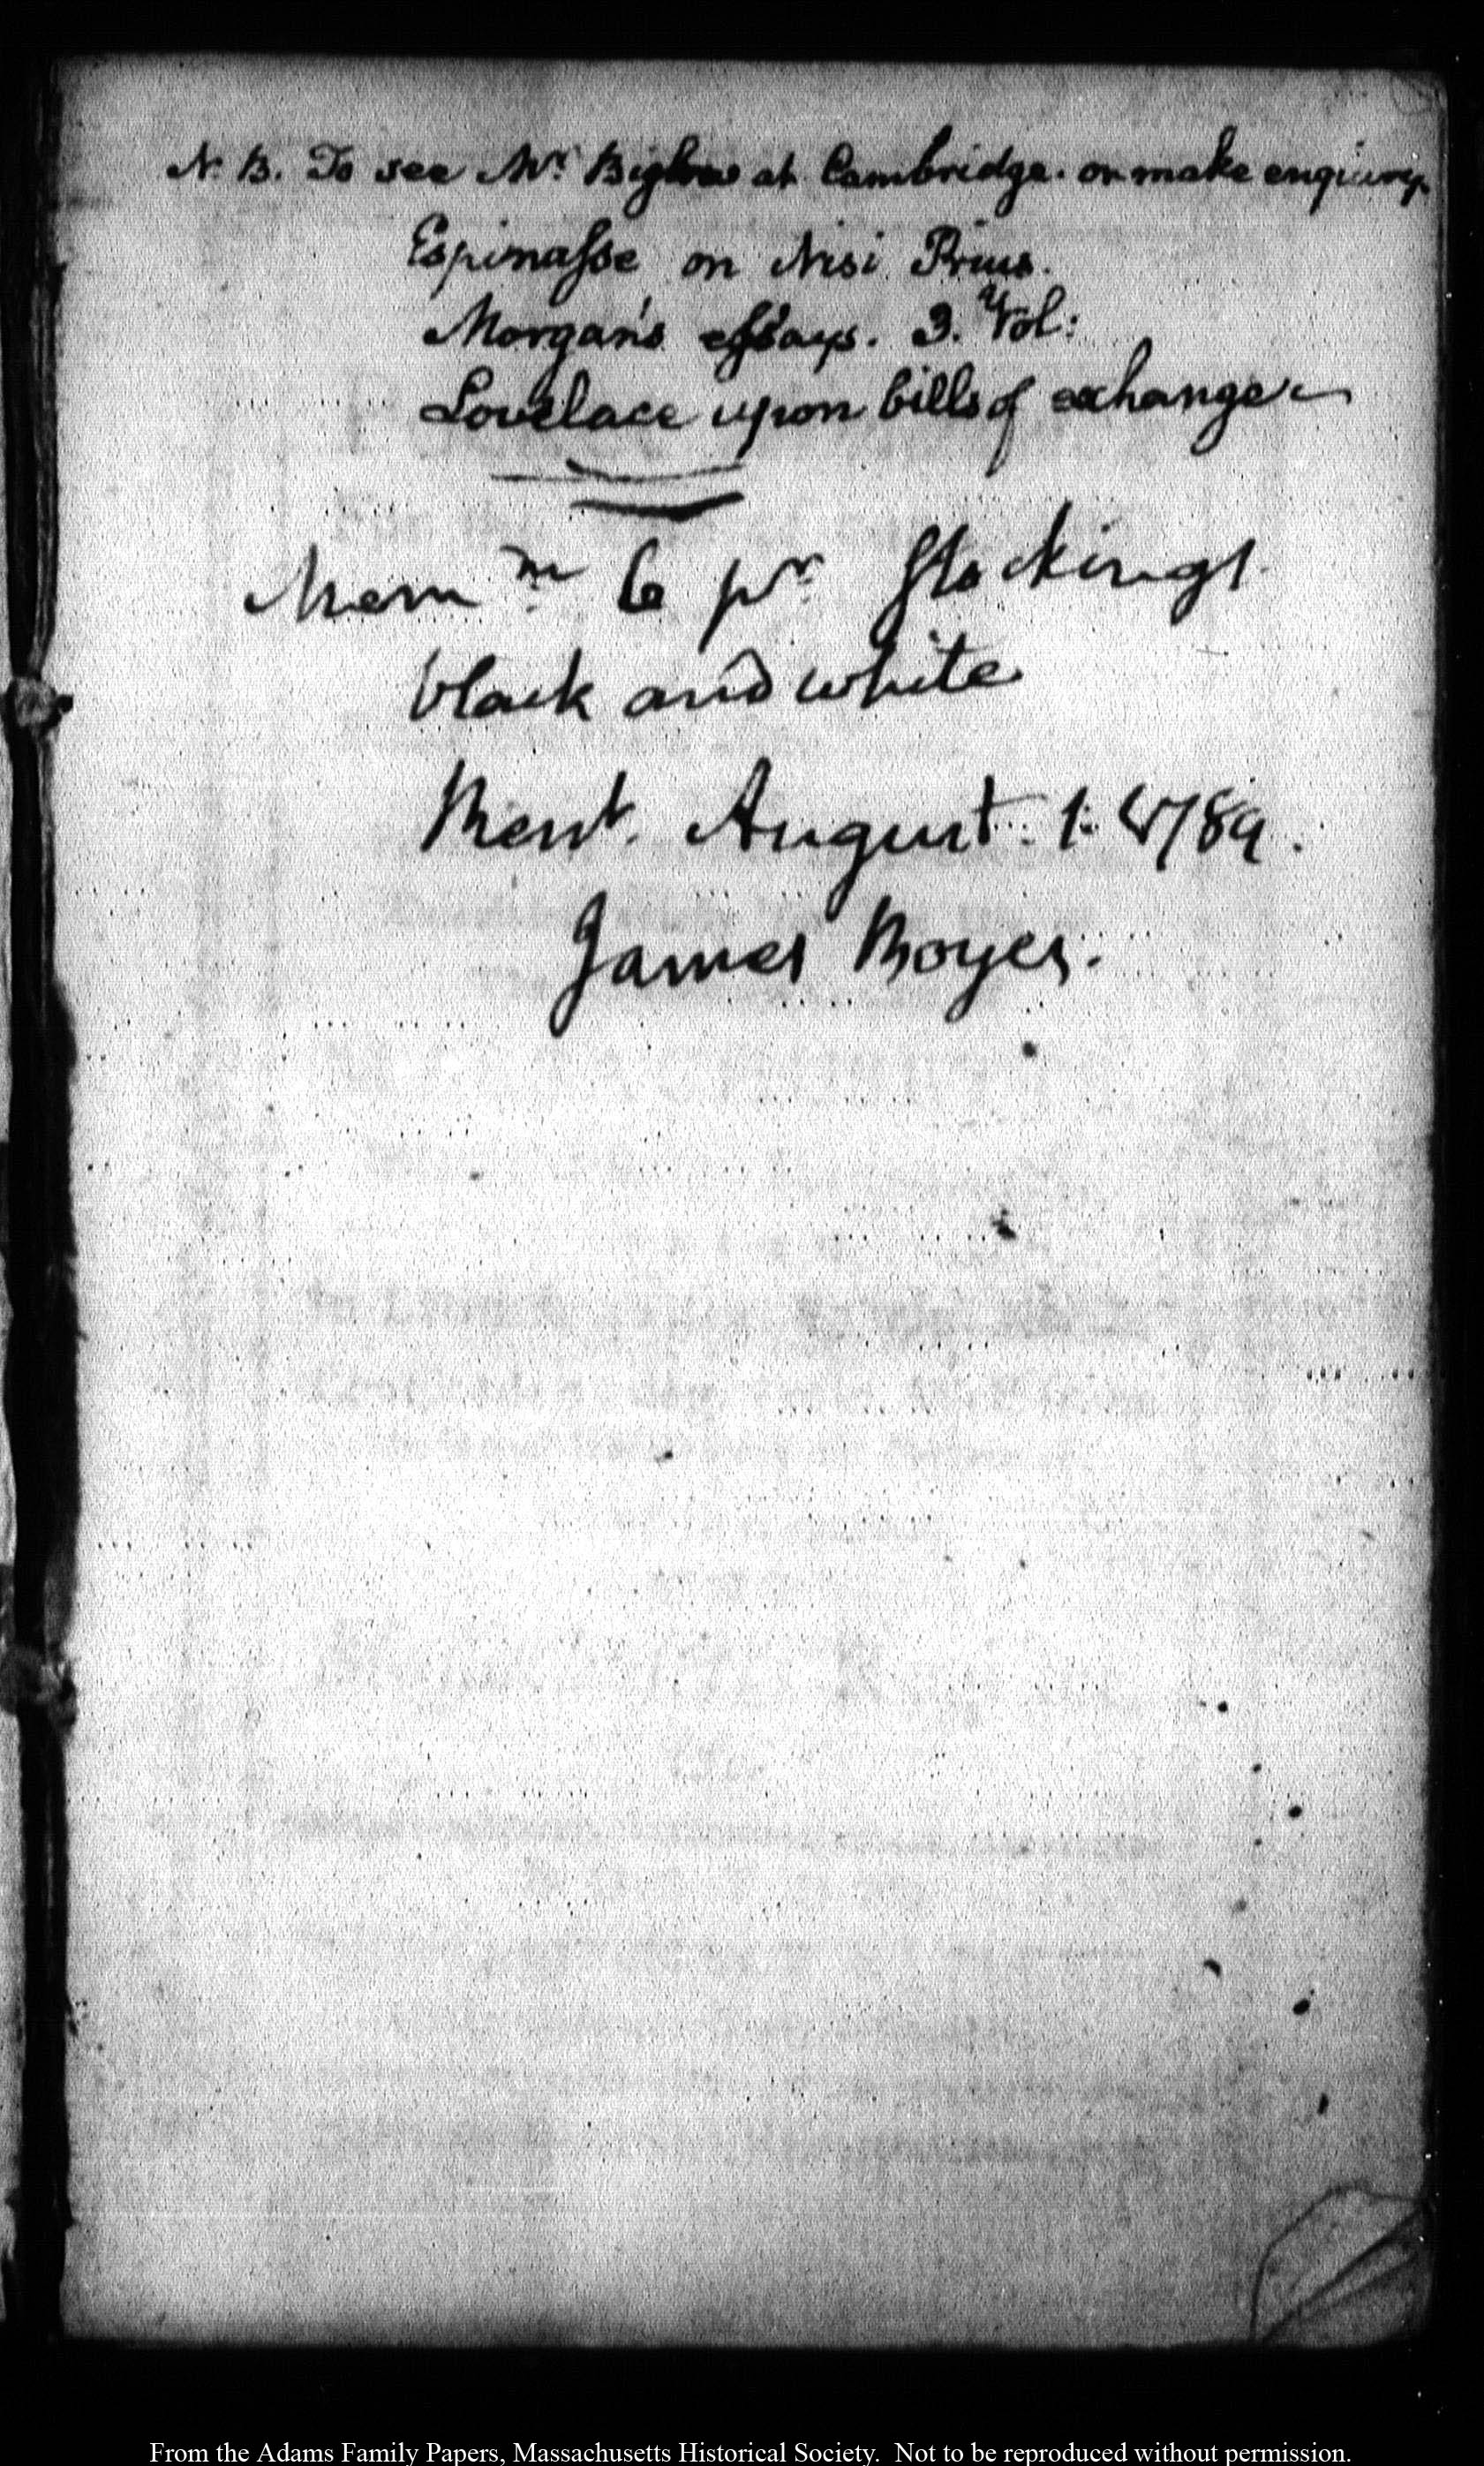 N. B. To see Mr. Biglow at Cambridge. or make enquiry.
Espinasse on Nisi Prius.
Morgan's essays. 3. Vol:
Lovelace upon bills of exchange
Memm 6 pr Stockings
black and white
August. 1. 1789.
James Noyes.
From the Adams Family Papers, Massachusetts Historical Society. Not to be reproduced without permission.